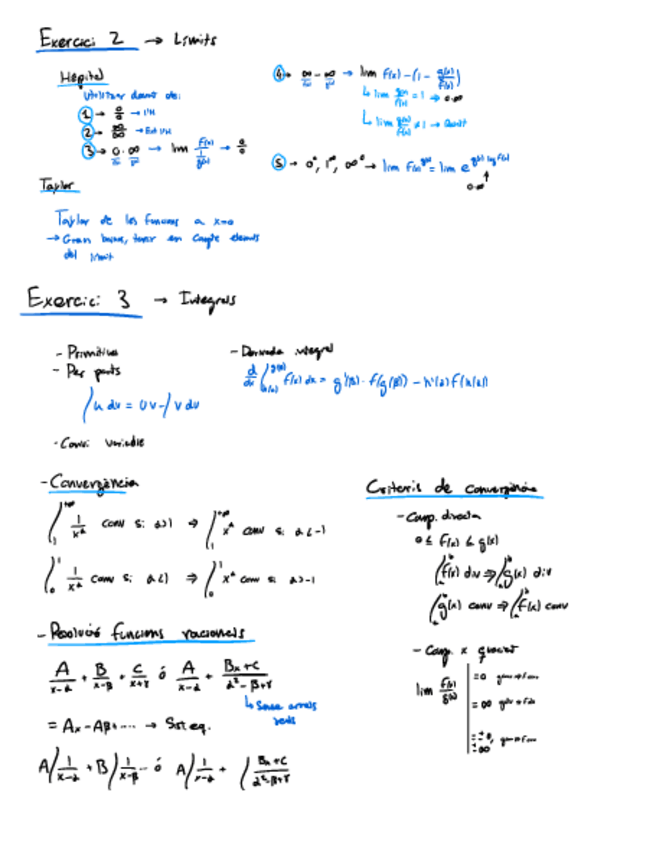 Exercici 2 → Límits
Hôpital
Utilitzar dames de:
① → 0/0 → L'H
② → ∞/∞ →
③ → 0·∞ → lim f(x)/(1/g(x)) → 0/0
④ → ∞-∞ → lim f(x)-(1-g(x)/f(x))
↳ lim g(x)/f(x) = 1 → 0·∞
↳ lim g(x)/f(x) ≠ 1 →
⑤ → 0⁰, 1^∞, ∞⁰ → lim f(x)^g(x) = lim e^(g(x) log f(x))
0·∞
Taylor
Taylor de les funcions a x=0
→ Gran tenir en compte
del límit
Exercici 3 → Integrals
- Primitiva
- Per parts
∫u dv = uv-∫v dv
- Canvi variable
- Derivada integral
d/dx ∫ f(x) dx = g'(x)· f(g(x)) - h'(x) f(h(x))
- Convergència
∫₁^+∞ 1/x^α conv si α>1 ⇒ ∫₁^+∞ x^α conv si α<-1
∫₀¹ 1/x^α conv si α<1 ⇒ ∫₀¹ x^α conv si α>-1
Criteris de convergència
- Comp. directa
0 ≤ f(x) ≤ g(x)
∫f(x) div ⇒ ∫g(x) div
∫g(x) conv ⇒ ∫f(x) conv
- Comp. x quocient
lim f(x)/g(x)
=0
=∞
- Resolució funcions racionals
A/(x-α) + B/(x-β) + C/(x+γ) ó A/(x-α) + (Bx+C)/(α²-β+γ)
↳ Sense arrels
reals
= Ax-Aβ+.... → Sist eq.
A∫1/(x-α) + B∫1/(x-β).. ó A∫1/(x-α) + ∫(Bx+C)/(α²-β+γ)